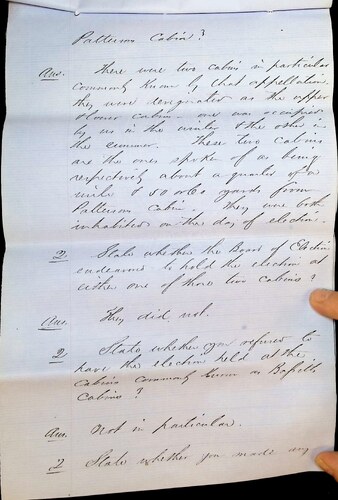 Pattersons Cabin?
Ans. There were two cabins in particular
commonly known by that appellation.
they were designated as the upper
& lower cabin - one was occupied
by us in the winter & the other in
the summer. These two cabins
are the ones spoken of as being
respectively about a quarter of a
mile & 50 or 60 yards from
Patterson Cabin. They were both
inhabited on the day of election.
2. State whether the Board of Election
endeavored to hold the election at
either one of those two cabins?
Ans. They did not.
2 State whether you refused to
have the election held at the
Cabins commonly known as
Cabins?
Ans. Not in particular.
2 State whether you made any